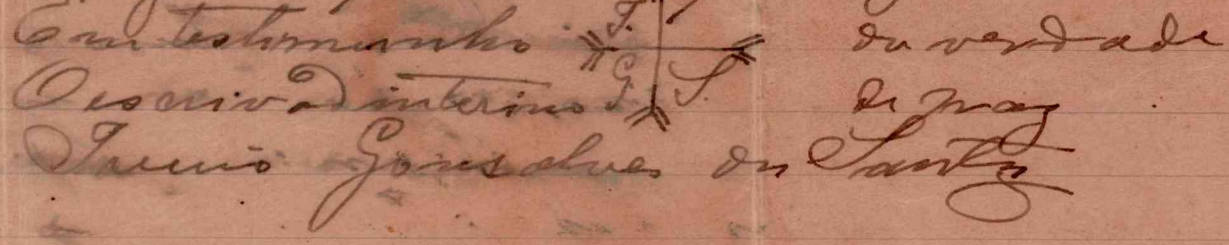 Em testemunho F. da verdade
O escrivão interino G. S. de paz
Gonsalves dos Santos